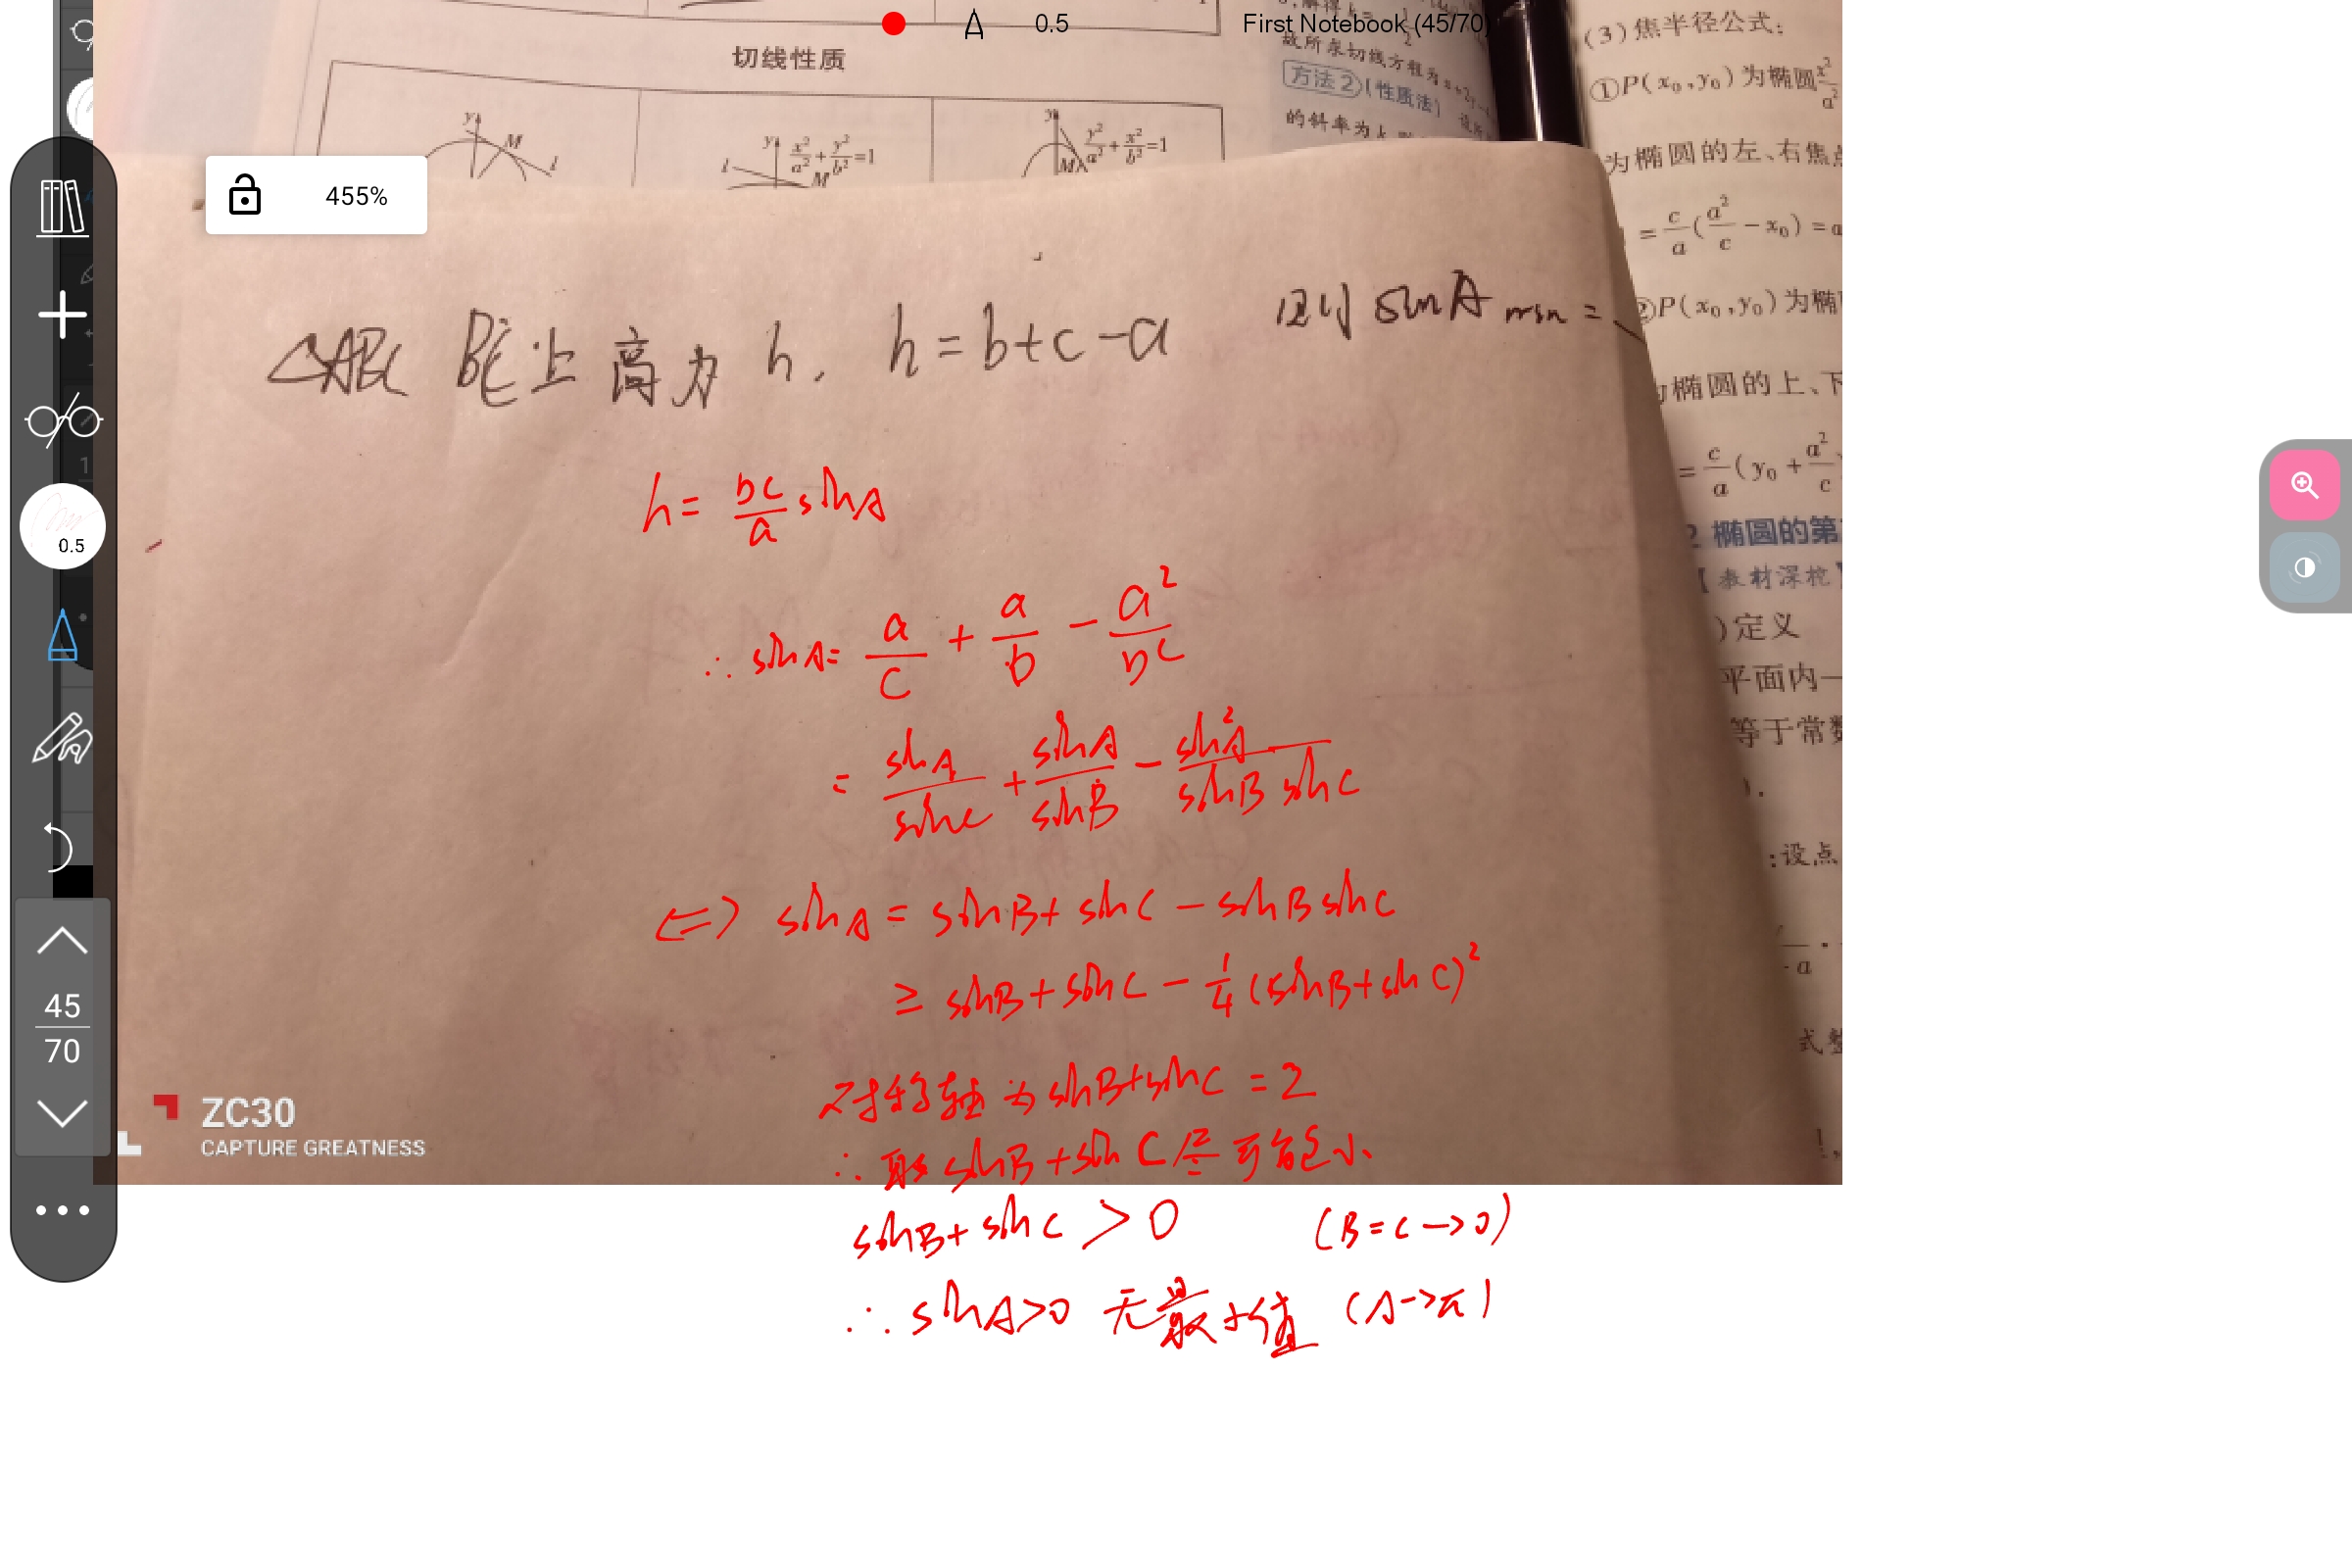 0.5
First Notebook (45/70)
切线性质
y
M
l
y
x²/a²+y²/b²=1
l
M
y
y²/a²+x²/b²=1
M
故所求切线方程为
方法2 (性质法)
的斜率为k
(3)焦半径公式:
①P(x₀,y₀)为椭圆x²/a²
为椭圆的左、右焦点
=c/a(a²/c-x₀)=a
②P(x₀,y₀)为椭
为椭圆的上、下
=c/a(y₀+a²/c)
2 椭圆的第
【教材深挖】
)定义
平面内一
等于常数
:设点
455%
△ABC BC上高为 h. h=b+c-a 则 sinA min =
h= bc/a sinA
∴ sinA= a/c + a/b - a²/bc
= sinA/sinC + sinA/sinB - sin²A/sinB sinC
<=> sinA = sinB+ sinC - sinB sinC
≥ sinB+sinC - 1/4 (sinB+sinC)²
对称轴为 sinB+sinC = 2
∴ 取 sinB+sinC 尽可能小
sinB+ sinC > 0 (B=C→0)
∴ sinA>0 无最小值 (A→π)
0.5
45
70
ZC30
CAPTURE GREATNESS